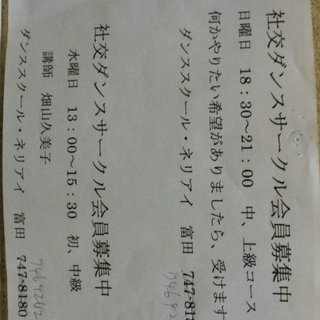 社交ダンスサークル会員募集中
日曜日 18：30〜21：00 中、上級コース
何かやりたい希望がありましたら、受けます
ダンススクール・ネリアイ 富田 747-818
社交ダンスサークル会員募集中
水曜日 13：00〜15：30 初、中級
講師 畑山久美子
ダンススクール・ネリアイ 富田 747-8180